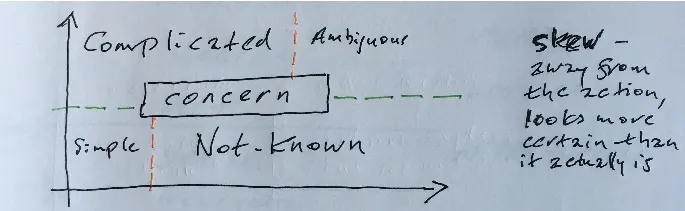 Complicated
Ambiguous
concern
Simple
Not-Known
skew -
away from
the action,
looks more
certain than
it actually is